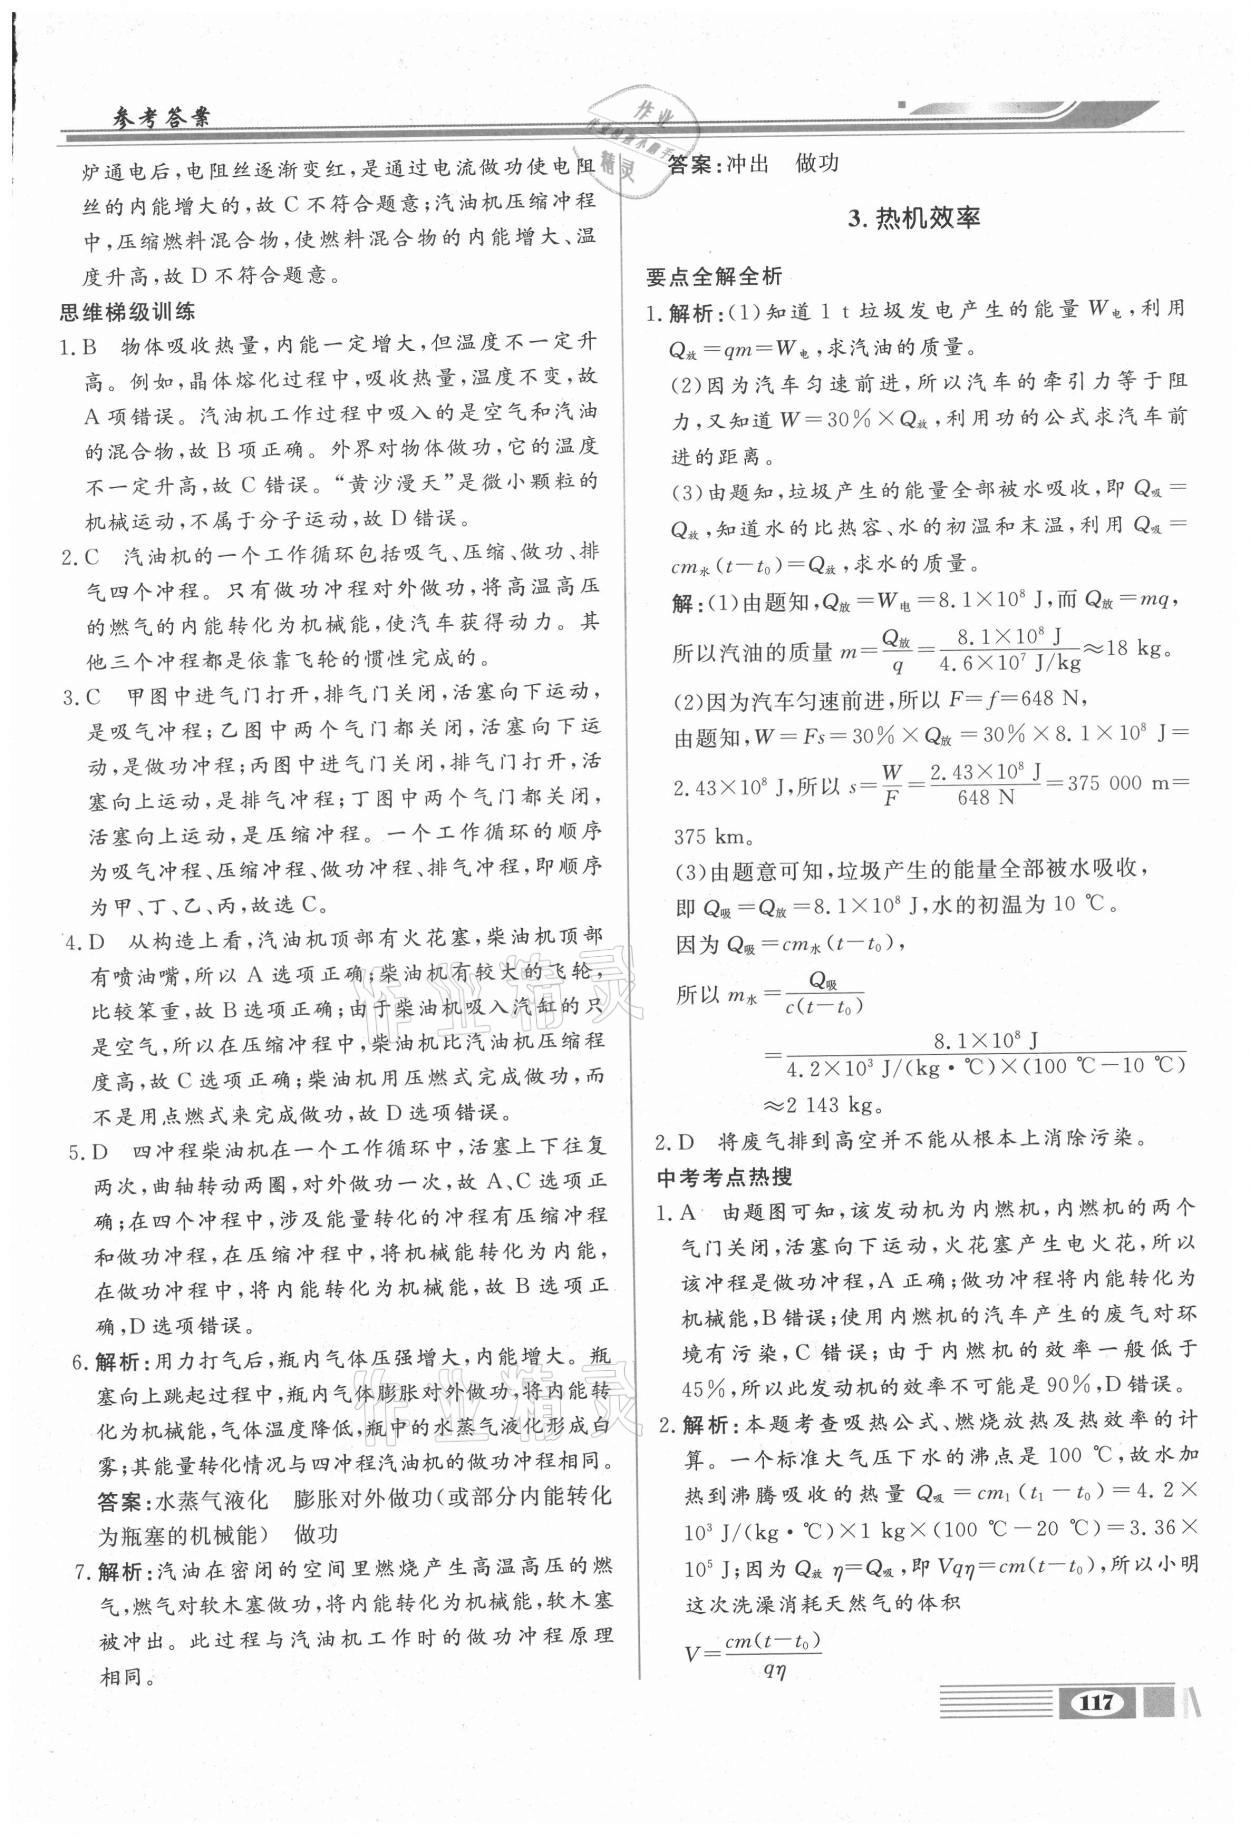 参考答案
炉通电后,电阻丝逐渐变红,是通过电流做功使电阻
丝的内能增大的,故 C 不符合题意;汽油机压缩冲程
中,压缩燃料混合物,使燃料混合物的内能增大、温
度升高,故 D 不符合题意。
思维梯级训练
1. B 物体吸收热量,内能一定增大,但温度不一定升
高。例如,晶体熔化过程中,吸收热量,温度不变,故
A 项错误。汽油机工作过程中吸入的是空气和汽油
的混合物,故 B 项正确。外界对物体做功,它的温度
不一定升高,故 C 错误。“黄沙漫天”是微小颗粒的
机械运动,不属于分子运动,故 D 错误。
2. C 汽油机的一个工作循环包括吸气、压缩、做功、排
气四个冲程。只有做功冲程对外做功,将高温高压
的燃气的内能转化为机械能,使汽车获得动力。其
他三个冲程都是依靠飞轮的惯性完成的。
3. C 甲图中进气门打开,排气门关闭,活塞向下运动,
是吸气冲程;乙图中两个气门都关闭,活塞向下运
动,是做功冲程;丙图中进气门关闭,排气门打开,活
塞向上运动,是排气冲程;丁图中两个气门都关闭,
活塞向上运动,是压缩冲程。一个工作循环的顺序
为吸气冲程、压缩冲程、做功冲程、排气冲程,即顺序
为甲、丁、乙、丙,故选 C。
4. D 从构造上看,汽油机顶部有火花塞,柴油机顶部
有喷油嘴,所以 A 选项正确;柴油机有较大的飞轮,
比较笨重,故 B 选项正确;由于柴油机吸入汽缸的只
是空气,所以在压缩冲程中,柴油机比汽油机压缩程
度高,故 C 选项正确;柴油机用压燃式完成做功,而
不是用点燃式来完成做功,故 D 选项错误。
5. D 四冲程柴油机在一个工作循环中,活塞上下往复
两次,曲轴转动两圈,对外做功一次,故 A、C 选项正
确;在四个冲程中,涉及能量转化的冲程有压缩冲程
和做功冲程,在压缩冲程中,将机械能转化为内能,
在做功冲程中,将内能转化为机械能,故 B 选项正
确,D 选项错误。
6. 解析:用力打气后,瓶内气体压强增大,内能增大。瓶
塞向上跳起过程中,瓶内气体膨胀对外做功,将内能转
化为机械能,气体温度降低,瓶中的水蒸气液化形成白
雾;其能量转化情况与四冲程汽油机的做功冲程相同。
答案:水蒸气液化 膨胀对外做功(或部分内能转化
为瓶塞的机械能) 做功
7. 解析:汽油在密闭的空间里燃烧产生高温高压的燃
气,燃气对软木塞做功,将内能转化为机械能,软木塞
被冲出。此过程与汽油机工作时的做功冲程原理
相同。
答案:冲出 做功
3. 热机效率
要点全解全析
1. 解析:(1)知道 1 t 垃圾发电产生的能量 W电,利用
Q放=qm=W电,求汽油的质量。
(2)因为汽车匀速前进,所以汽车的牵引力等于阻
力,又知道 W=30%×Q放,利用功的公式求汽车前
进的距离。
(3)由题知,垃圾产生的能量全部被水吸收,即 Q吸=
Q放,知道水的比热容、水的初温和末温,利用 Q吸=
cm水(t-t₀)=Q放,求水的质量。
解:(1)由题知,Q放=W电=8.1×10⁸ J,而 Q放=mq,
所以汽油的质量 m=Q放/q=8.1×10⁸ J/4.6×10⁷ J/kg≈18 kg。
(2)因为汽车匀速前进,所以 F=f=648 N,
由题知,W=Fs=30%×Q放=30%×8.1×10⁸ J=
2.43×10⁸ J,所以 s=W/F=2.43×10⁸ J/648 N=375 000 m=
375 km。
(3)由题意可知,垃圾产生的能量全部被水吸收,
即 Q吸=Q放=8.1×10⁸ J,水的初温为 10 ℃。
因为 Q吸=cm水(t-t₀),
所以 m水=Q吸/c(t-t₀)
=8.1×10⁸ J/4.2×10³ J/(kg·℃)×(100 ℃-10 ℃)
≈2 143 kg。
2. D 将废气排到高空并不能从根本上消除污染。
中考考点热搜
1. A 由题图可知,该发动机为内燃机,内燃机的两个
气门关闭,活塞向下运动,火花塞产生电火花,所以
该冲程是做功冲程,A 正确;做功冲程将内能转化为
机械能,B 错误;使用内燃机的汽车产生的废气对环
境有污染,C 错误;由于内燃机的效率一般低于
45%,所以此发动机的效率不可能是 90%,D 错误。
2. 解析:本题考查吸热公式、燃烧放热及热效率的计
算。一个标准大气压下水的沸点是 100 ℃,故水加
热到沸腾吸收的热量 Q吸=cm₁(t₁-t₀)=4.2×
10³ J/(kg·℃)×1 kg×(100 ℃-20 ℃)=3.36×
10⁵ J;因为 Q放η=Q吸,即 Vqη=cm(t-t₀),所以小明
这次洗澡消耗天然气的体积
V=cm(t-t₀)/qη
117
作业
精灵
作业精灵
作业精灵